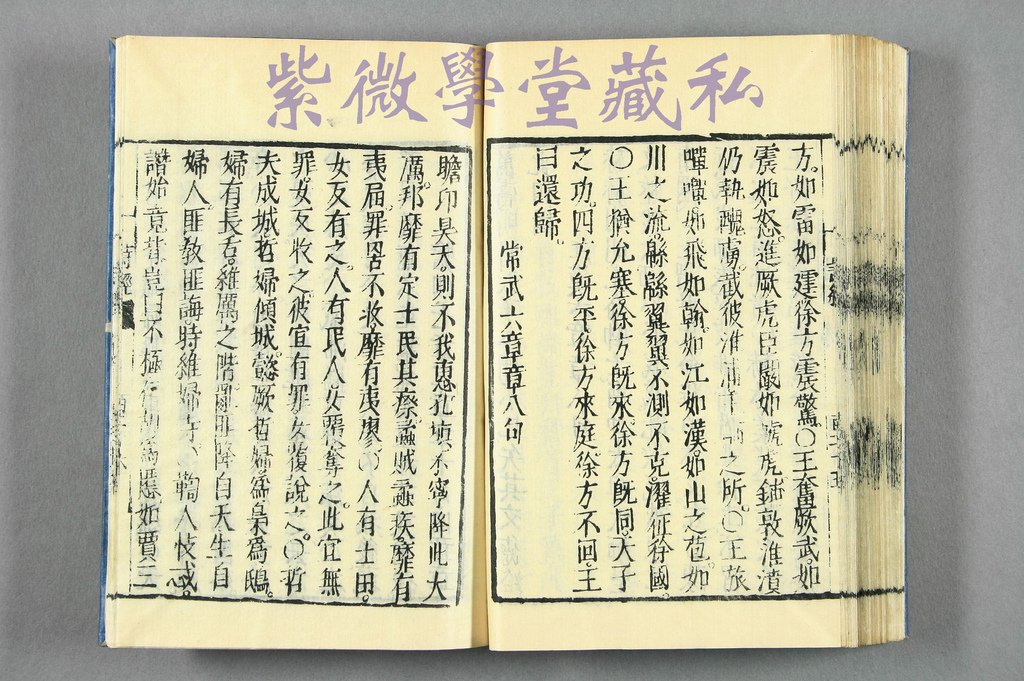 紫微學堂藏私
方。如雷如霆。徐方震驚。〇王奮厥武。如
震如怒。進厥虎臣。闞如虓虎。鋪敦淮濆。
仍執醜虜。截彼淮浦。王師之所。〇王旅
嘽嘽。如飛如翰。如江如漢。如山之苞。如
川之流。緜緜翼翼。不測不克。濯征徐國。
〇王猶允塞。徐方旣來。徐方旣同。天子
之功。四方旣平。徐方來庭。徐方不回。王
曰還歸。
常武六章章八句
瞻卬昊天。則不我惠。孔塡不寧。降此大
厲。邦靡有定。士民其瘵。蟊賊蟊疾。靡有
夷屆。罪罟不收。靡有夷瘳。〇人有土田。
女反有之。人有民人。女覆奪之。此宜無
罪。女反收之。彼宜有罪。女覆說之。〇哲
夫成城。哲婦傾城。懿厥哲婦。爲梟爲鴟。
婦有長舌。維厲之階。亂匪降自天。生自
婦人。匪敎匪誨。時維婦寺。〇鞫人忮忒。
譖始竟背。豈曰不極。伊胡爲慝。如賈三
詩經